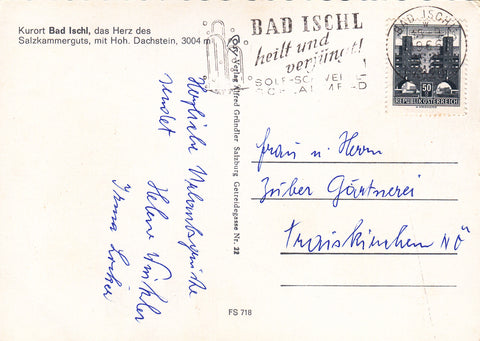 Kurort Bad Ischl, das Herz des
Salzkammerguts, mit Hoh. Dachstein, 3004 m
BAD ISCHL
heilt und
verjüngt!
BAD ISCHL
50
REPUBLIK ÖSTERREICH
Verlag Alfred Gründler Salzburg Getreidegasse Nr. 22
Herzliche Urlaubsgrüße
sendet
Helene Winkler
Irma
Frau u. Herrn
Zuber Gärtnerei
Traiskirchen NÖ
FS 718